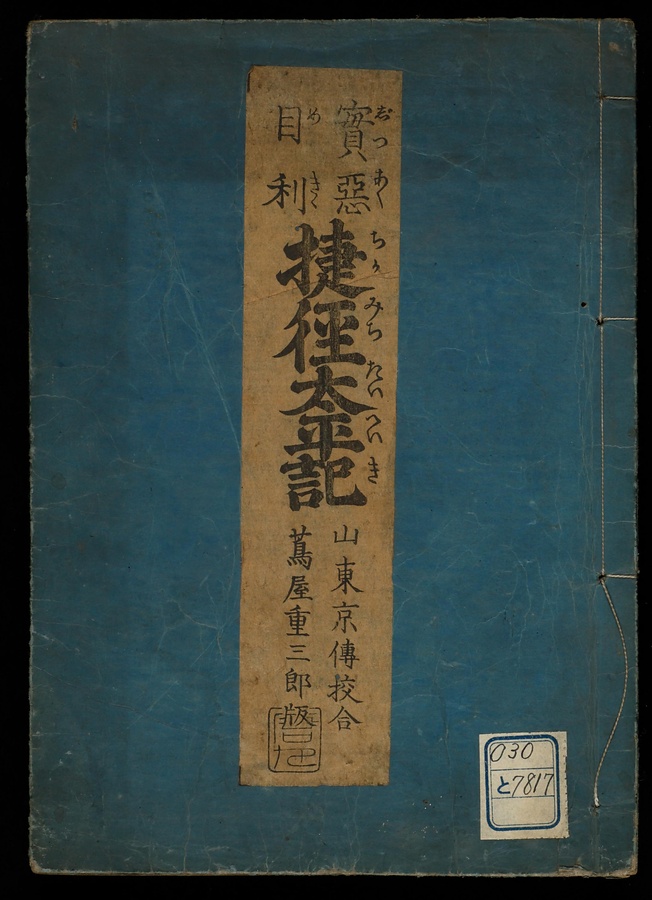 實惡
じつあく
目利
めきゝ
捷徑太平記
ちかみちたいへいき
山東京傳挍合
蔦屋重三郎版
030
と7817